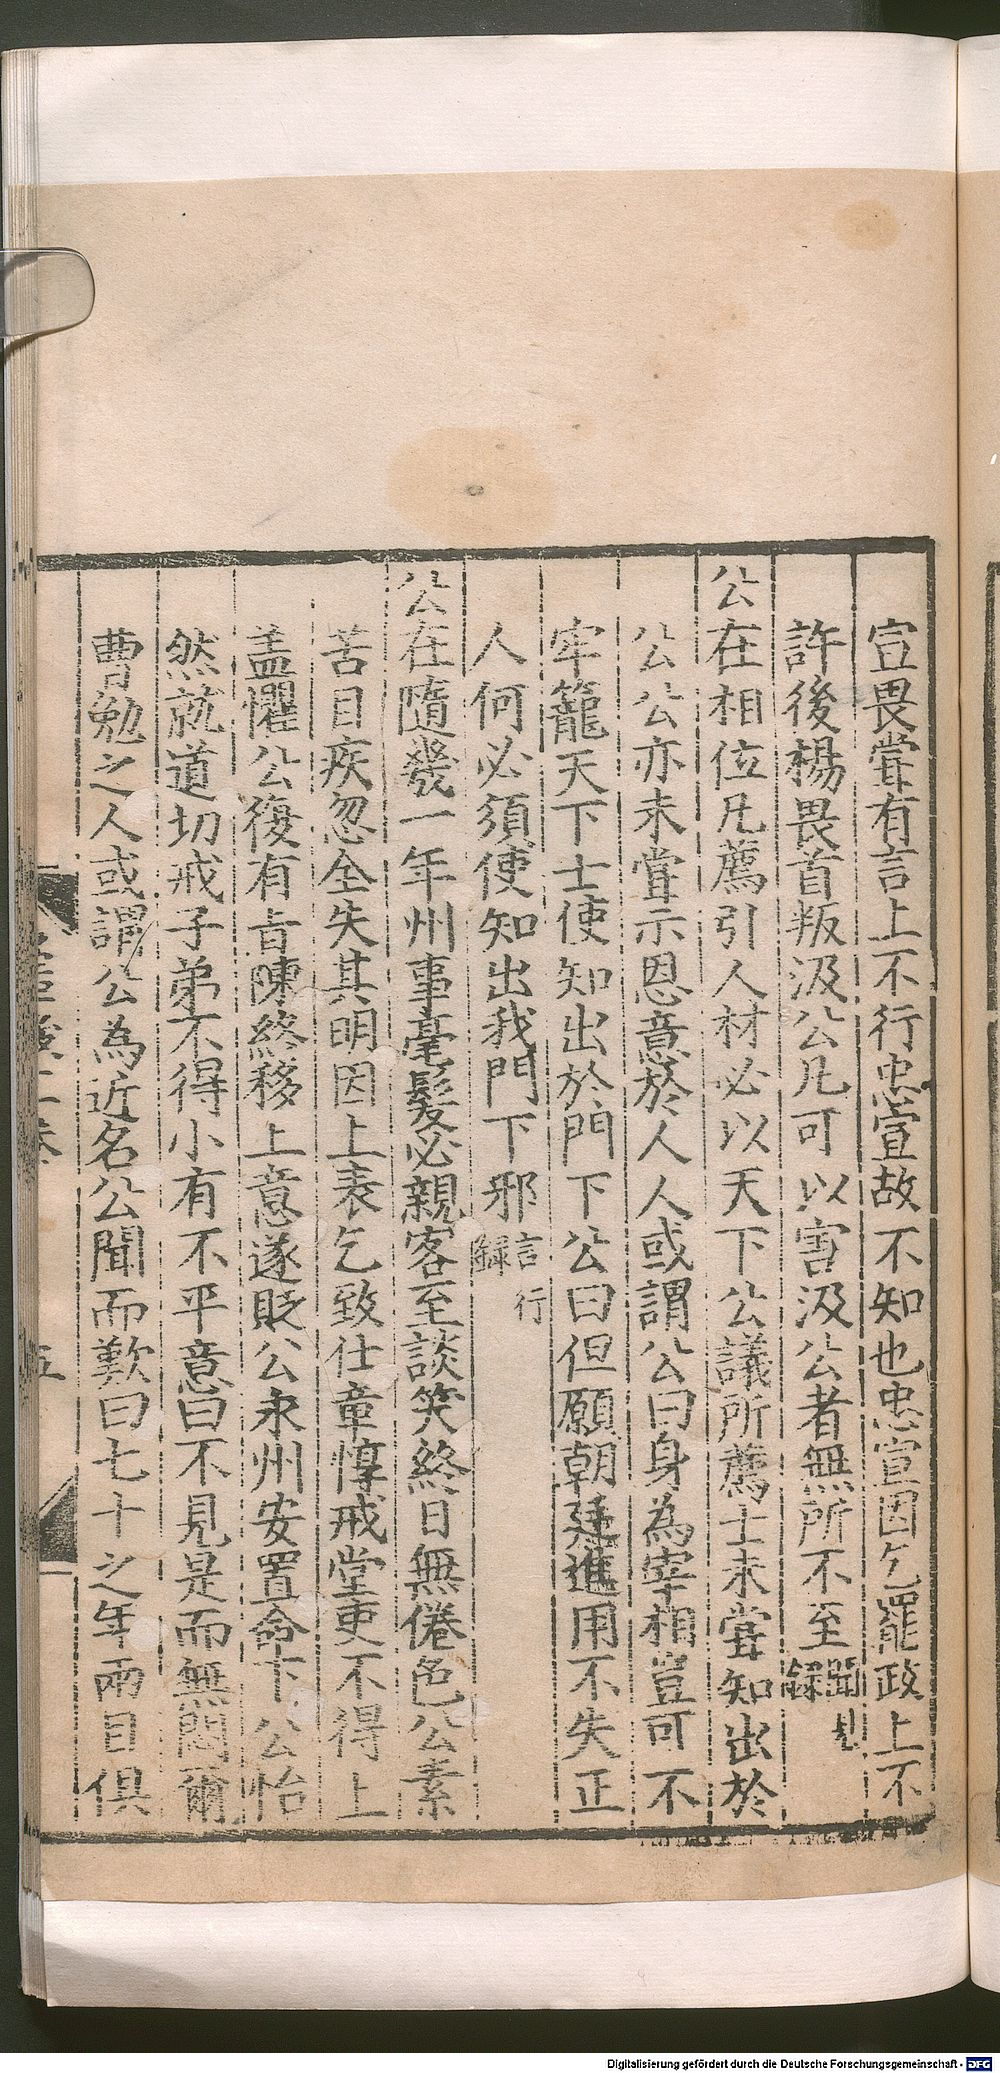 宣畏甞有言上不行忠宣故不知也忠宣因乞罷政上不
許後楊畏首叛汲公凡可以害汲公者無所不至聞見録
公在相位凡薦引人材必以天下公議所薦士未甞知出於
公公亦未甞示恩意於人人或謂公曰身為宰相豈可不
牢籠天下士使知出於門下公曰但願朝廷進用不失正
人何必須使知出我門下邪言行録
公在隨幾一年州事毫髮必親客至談笑終日無倦色公素
苦目疾忽全失其明因上表乞致仕章惇戒堂吏不得上
盖懼公復有㫖陳終移上意遂貶公永州安置命下公怡
然就道切戒子弟不得小有不平意曰不見是而無悶爾
曹勉之人或謂公為近名公聞而歎曰七十之年兩目俱
五
Digitalisierung gefördert durch die Deutsche Forschungsgemeinschaft - DFG